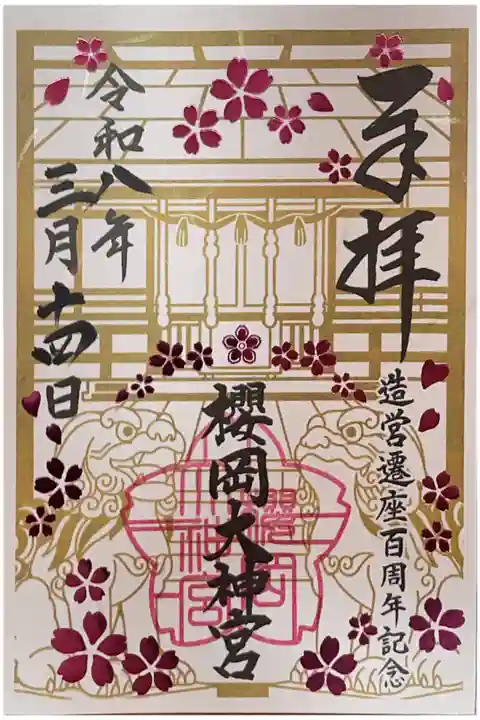 奉拝
造営遷座百周年記念
櫻岡大神宮
櫻岡
大神宮
令和八年
三月十四日